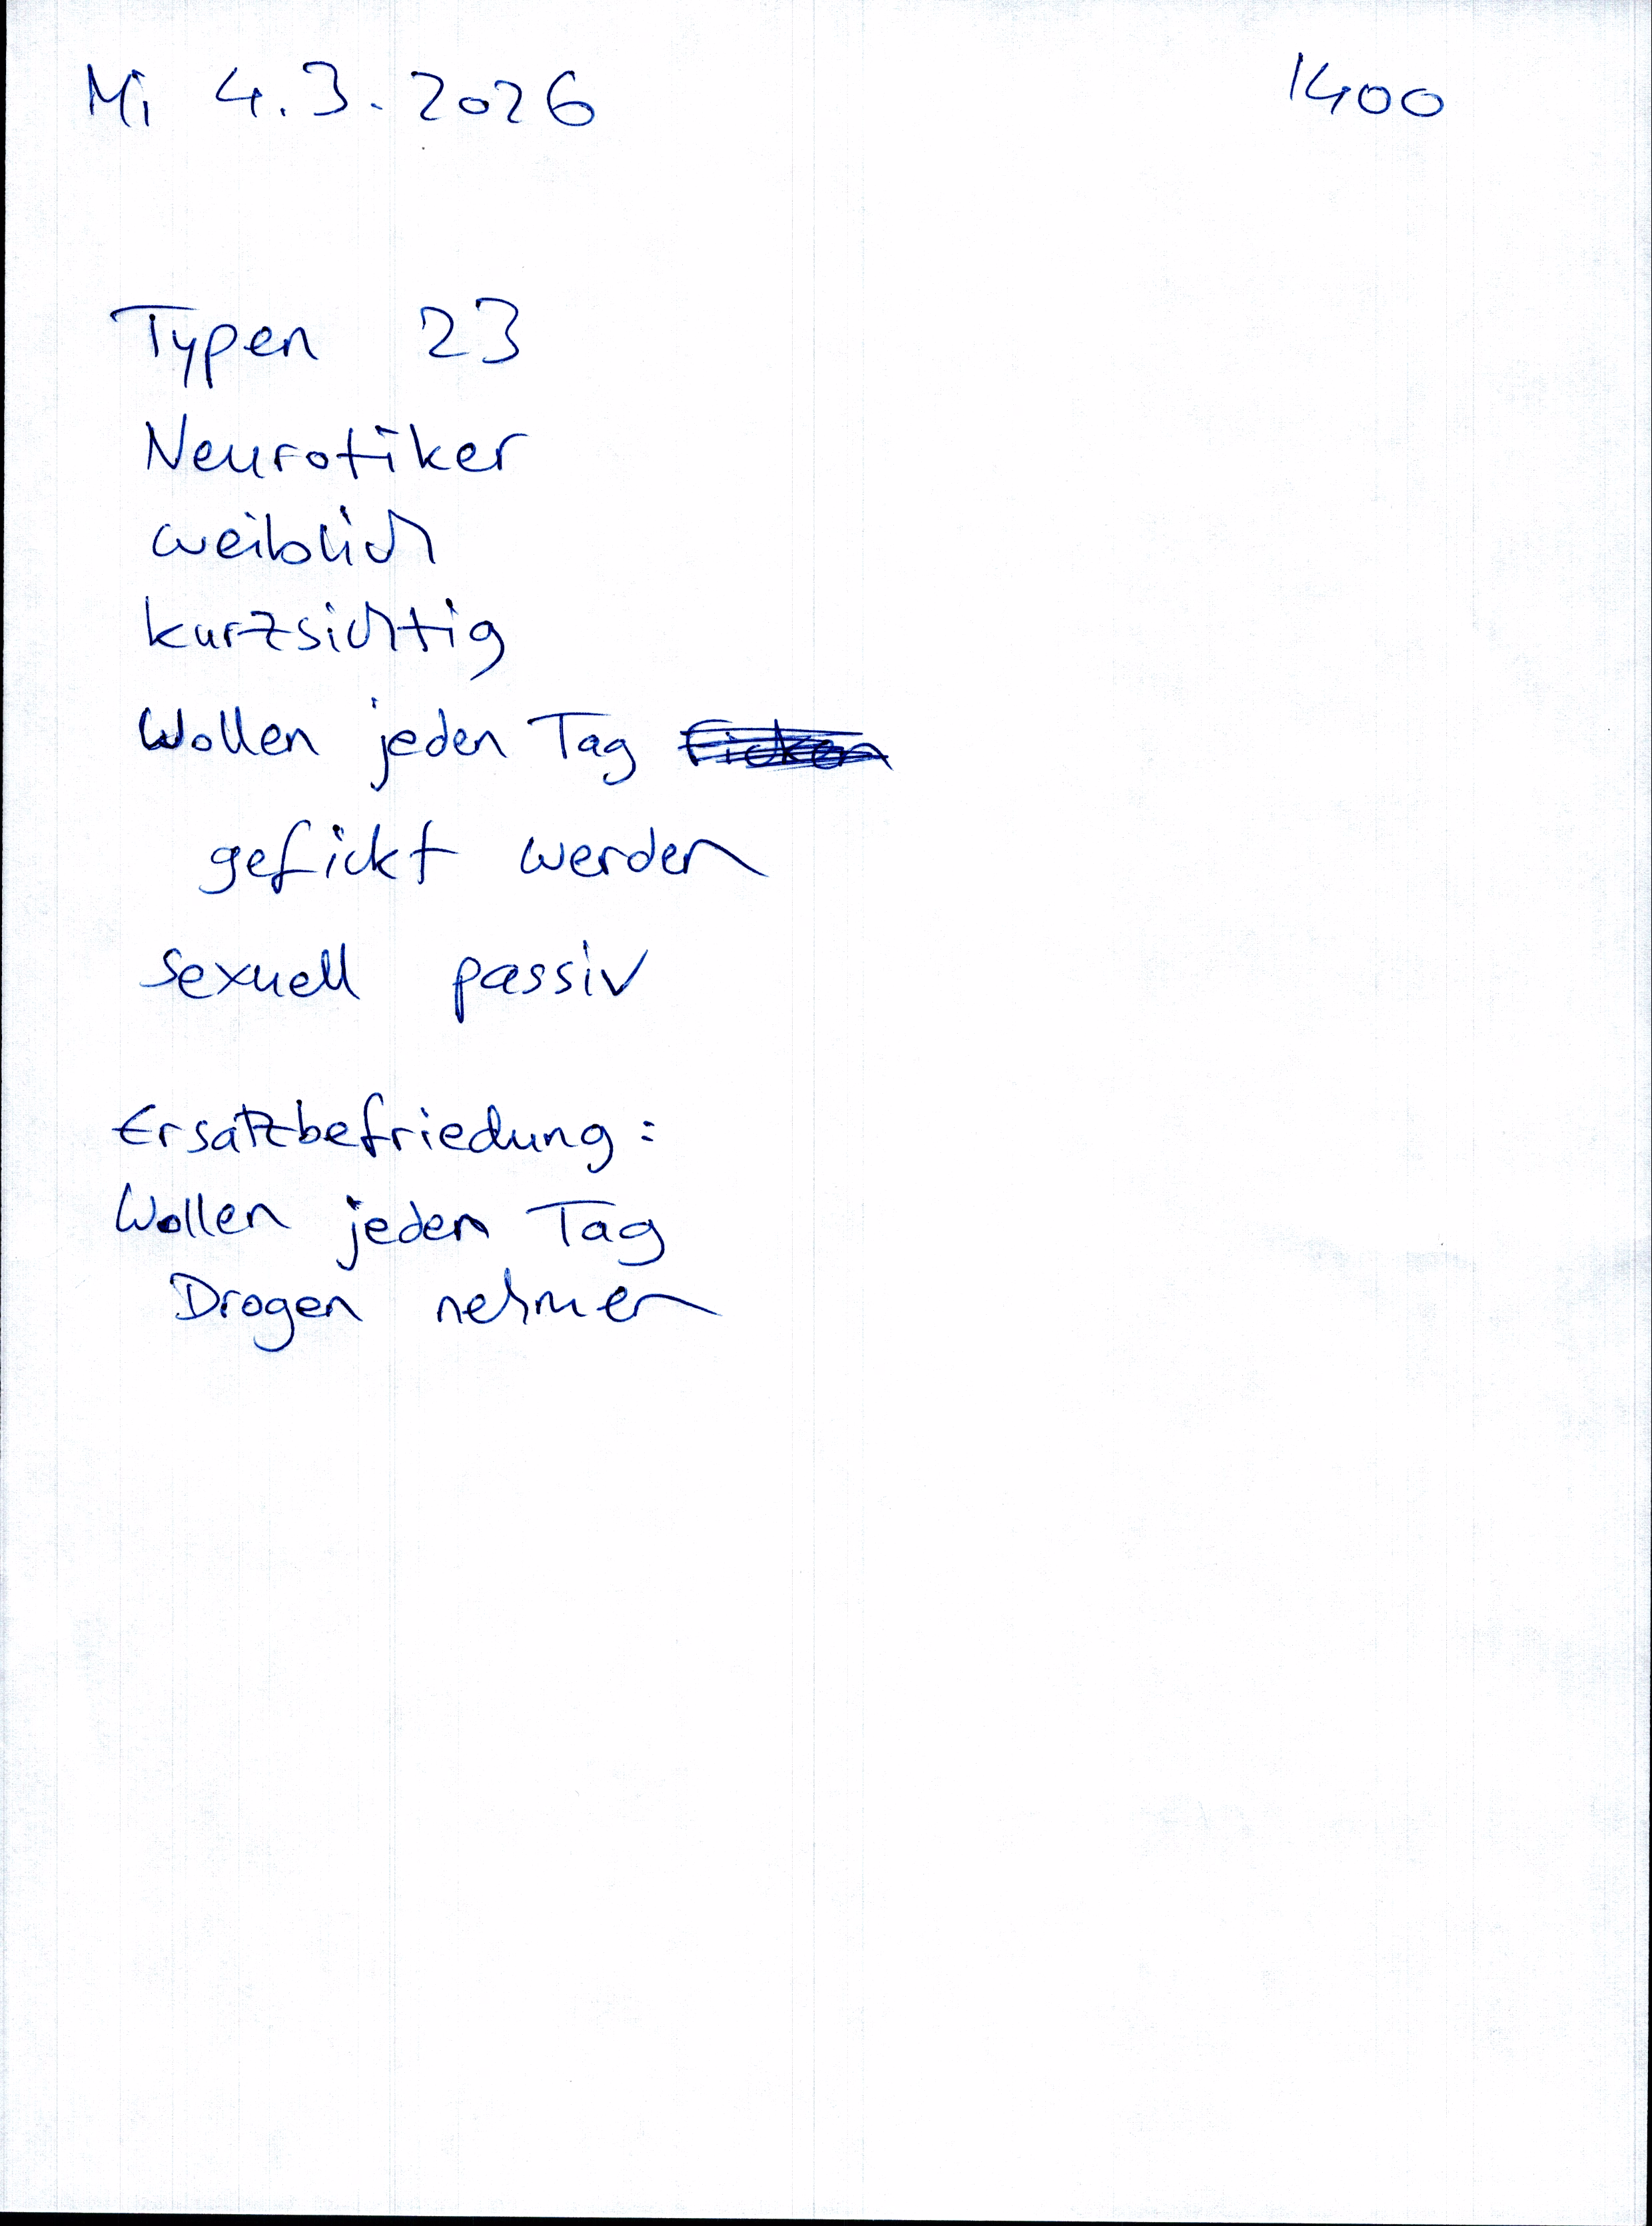 Mi 4.3.2026 1400
Typen 23
Neurotiker
weiblich
kurzsichtig
Wollen jeden Tag ficken
gefickt werden
sexuell passiv
Ersatzbefriedung:
Wollen jeden Tag
Drogen nehmen